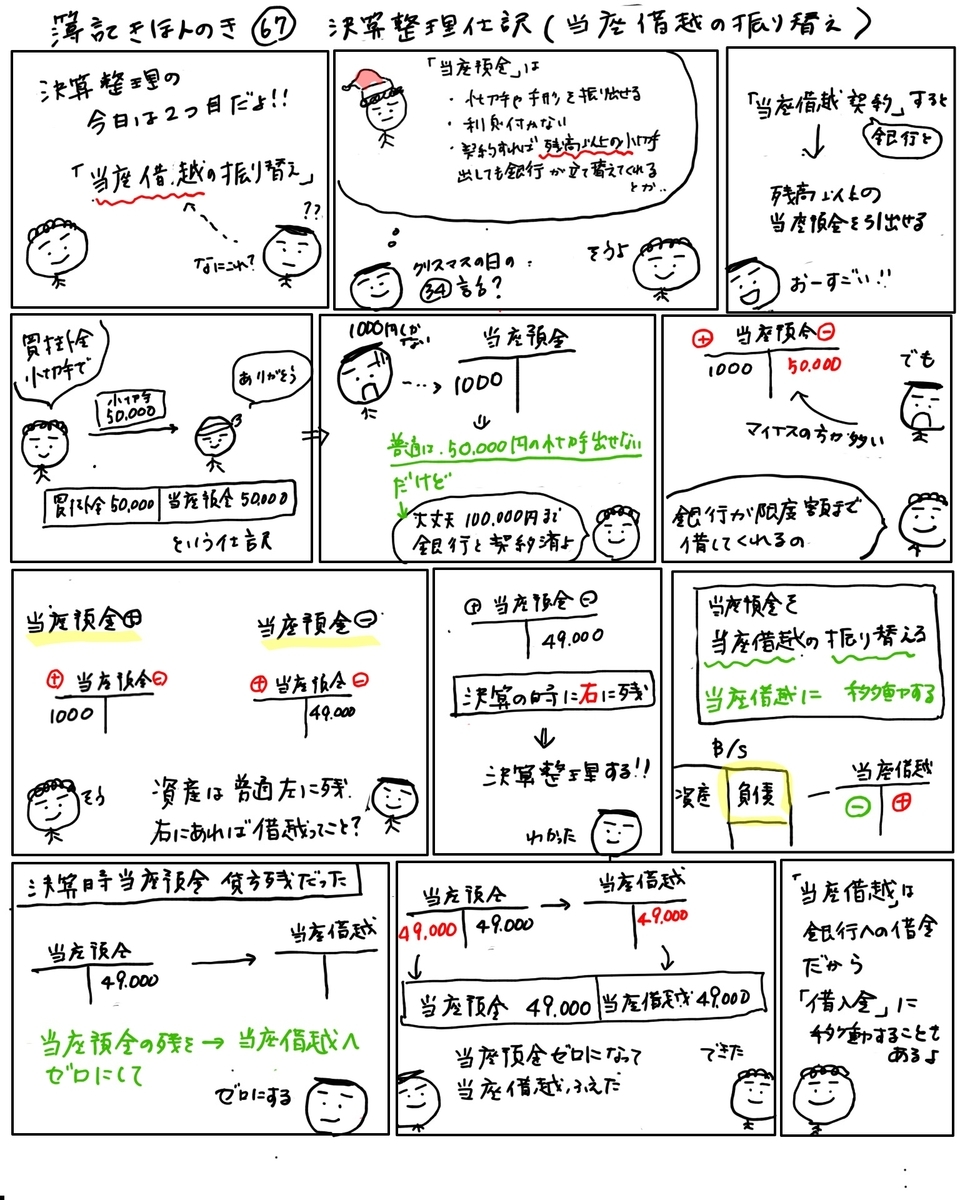 簿記きほんのき 67 決算整理仕訳(当座借越の振り替え)
決算整理の
今日は2つ目だよ!!
「当座借越の振り替え」
??
なにこれ?
「当座預金」は
・小切手や手形を振り出せる
・利息付かない
・契約すれば残高以上の小切手
出しても銀行が立て替えてくれる
とか..
クリスマスの日の
34話?
そうよ
「当座借越契約」すると
銀行と
↓
残高以上の
当座預金を引出せる
おーすごい!!
買掛金
小切手で
小切手
50,000
ありがそう
買掛金 50,000 当座預金 50,000
という仕訳
⇒
1000円しか
ない
当座預金
1000
普通は、50,000円の小切手出せない
だけど
大丈夫 100,000円まで
銀行と契約済よ
+ 当座預金 -
1000 50,000
マイナスの方が多い
でも
銀行が限度額まで
借してくれるの
当座預金+
+ 当座預金 -
1000
当座預金-
+ 当座預金 -
49,000
そう
資産は普通左に残、
右にあれば借越ってこと?
+ 当座預金 -
49,000
決算の時に右に残
⇓
決算整理する!!
わかった
当座預金を
当座借越の振り替える
当座借越に 移動する
B/S
資産 負債
当座借越
- +
決算時当座預金 貸方残だった
当座預金 → 当座借越
49,000
当座預金の残を→当座借越へ
ゼロにして
ゼロにする
当座預金 → 当座借越
49,000 49,000 49,000
当座預金 49,000 当座借越 49,000
当座預金ゼロになって
当座借越ふえた
できた
「当座借越」は
銀行への借金
だから
「借入金」に
移動することも
あるよ